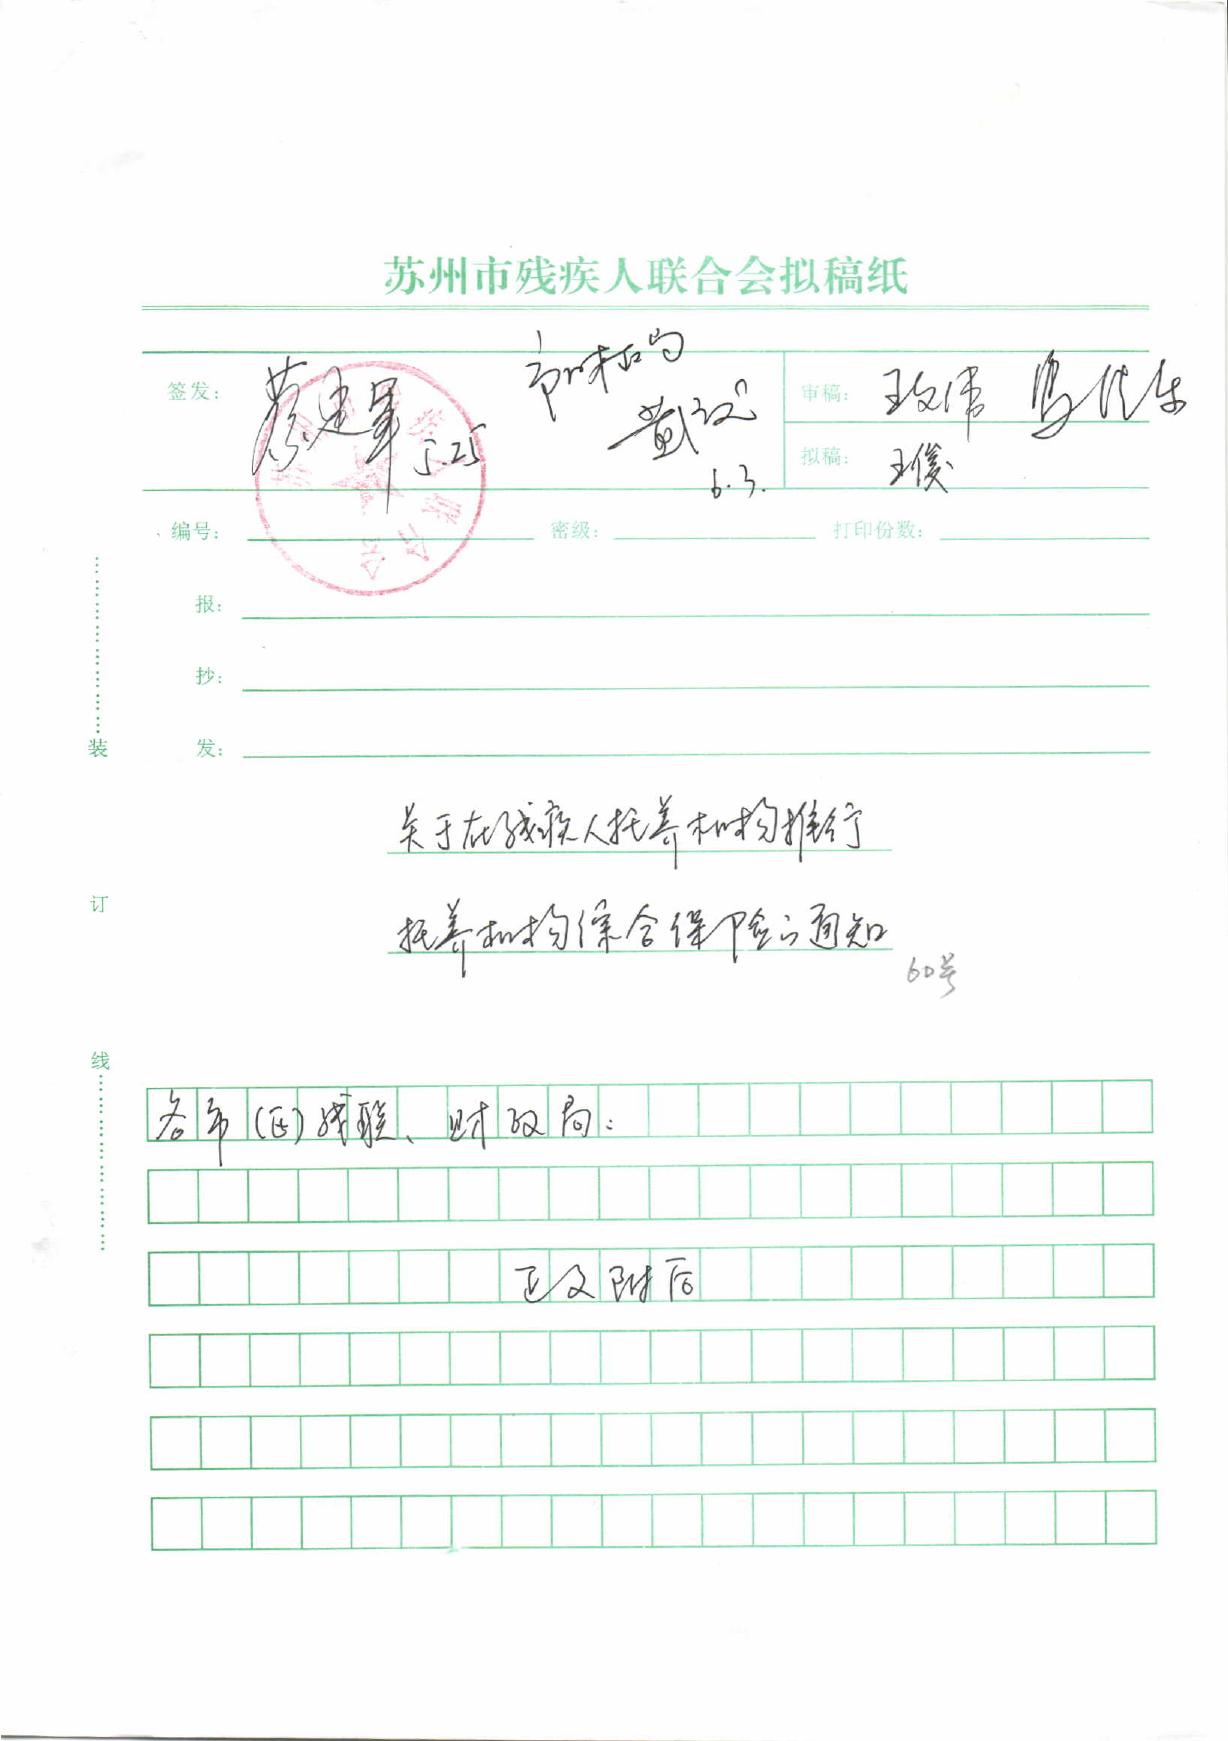 苏州市残疾人联合会拟稿纸
签发：
蔡建军 5.25
市财政局
6.3.
审稿：
拟稿：
王俊
编号：
密级：
打印份数：
报：
抄：
发：
装
订
线
关于在残疾人托养机构推行
托养机构综合保险的通知
60号
各市（区）残联、财政局：
正文附后